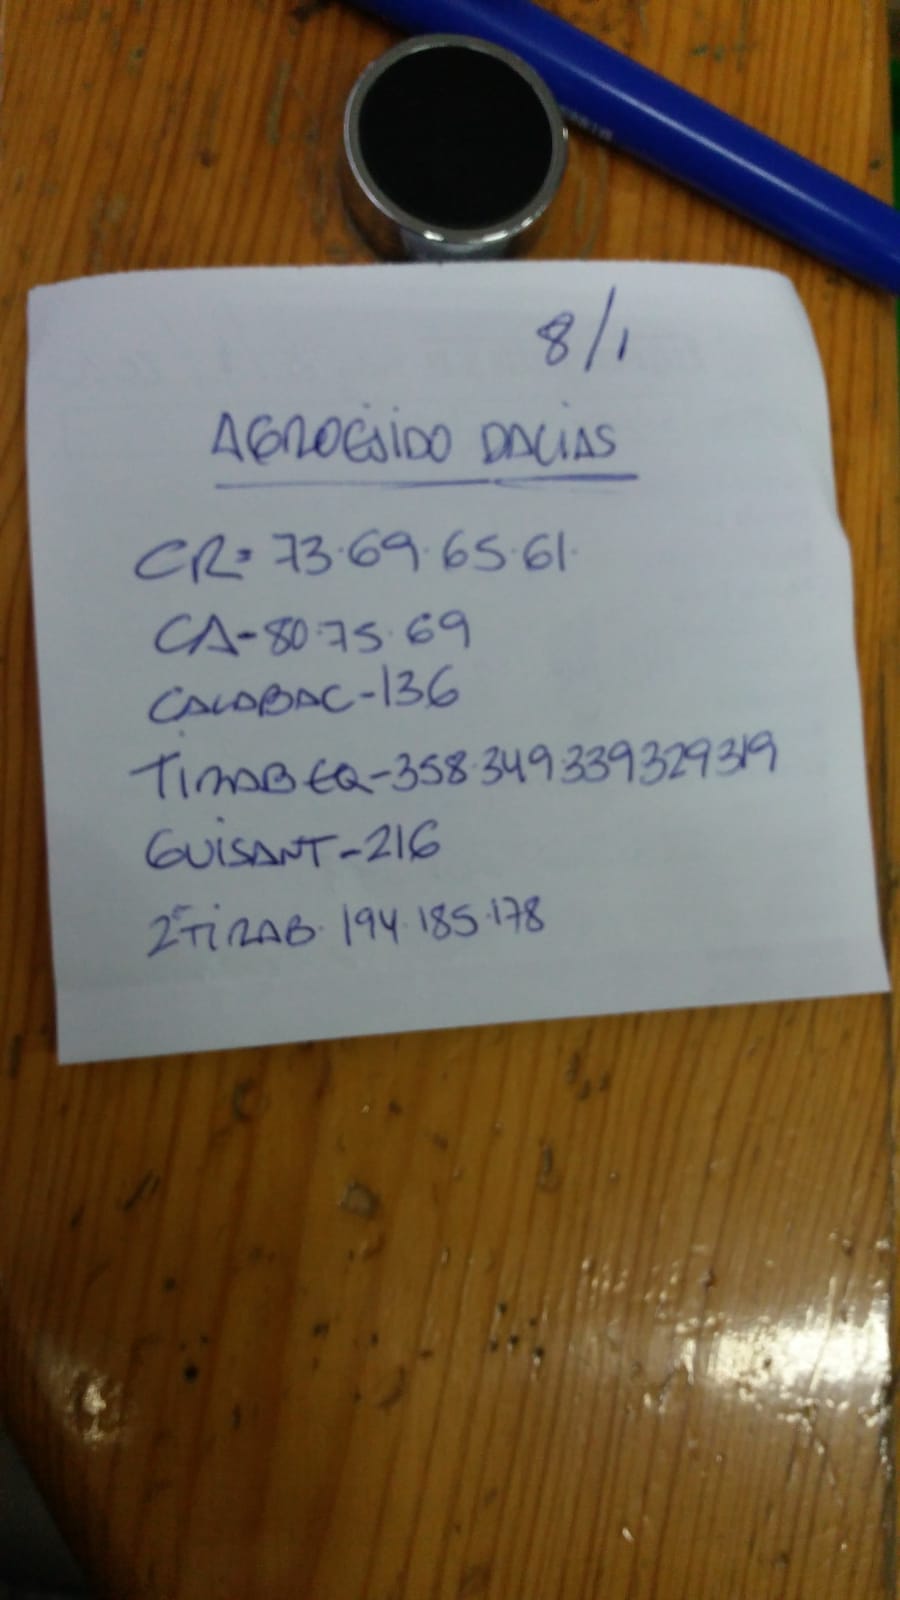 8/1
AGROEJIDO DALIAS
CR= 73.69.65.61.
CA-80.75.69
CALABAC-136
TIRABEQ-358.349.339329319
GUISANT-216
2ªTIRAB. 194.185.178